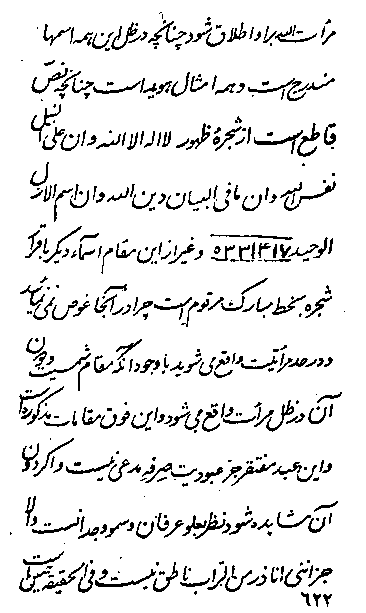 مرأت الله بر او اطلاق شود چنانچه در ظل این همه اسمها
مندرج است و همه امثال هویدا است چنانچه نص
قاطع است از شجرهٔ ظهور لااله الا الله و ان علی النبیل
نفس الله و ان ما فی البیان دین الله و ان اسم الازل
الوحید و غیر از این مقام اسماء دیگر باقرار
شجره بخط مبارک مرقوم است چرا در آنجا غوص نمی نمائید
و در حد مرأتیت واقع می شوید با وجود آنکه مقام شمسیت و چون
آن در ظل مرأت واقع می شود و این فوق مقامات مذکوره است
و این عبد مفتقر جز عبودیت صرفه مدعی نیست و اگر دون
آن مشاهده شود نظر بعلو عرفان و سمو وجد انست والا
جز اننی انا ذر من التراب ناطق نیست و فی الحقیقه چنین است
٦٢٢